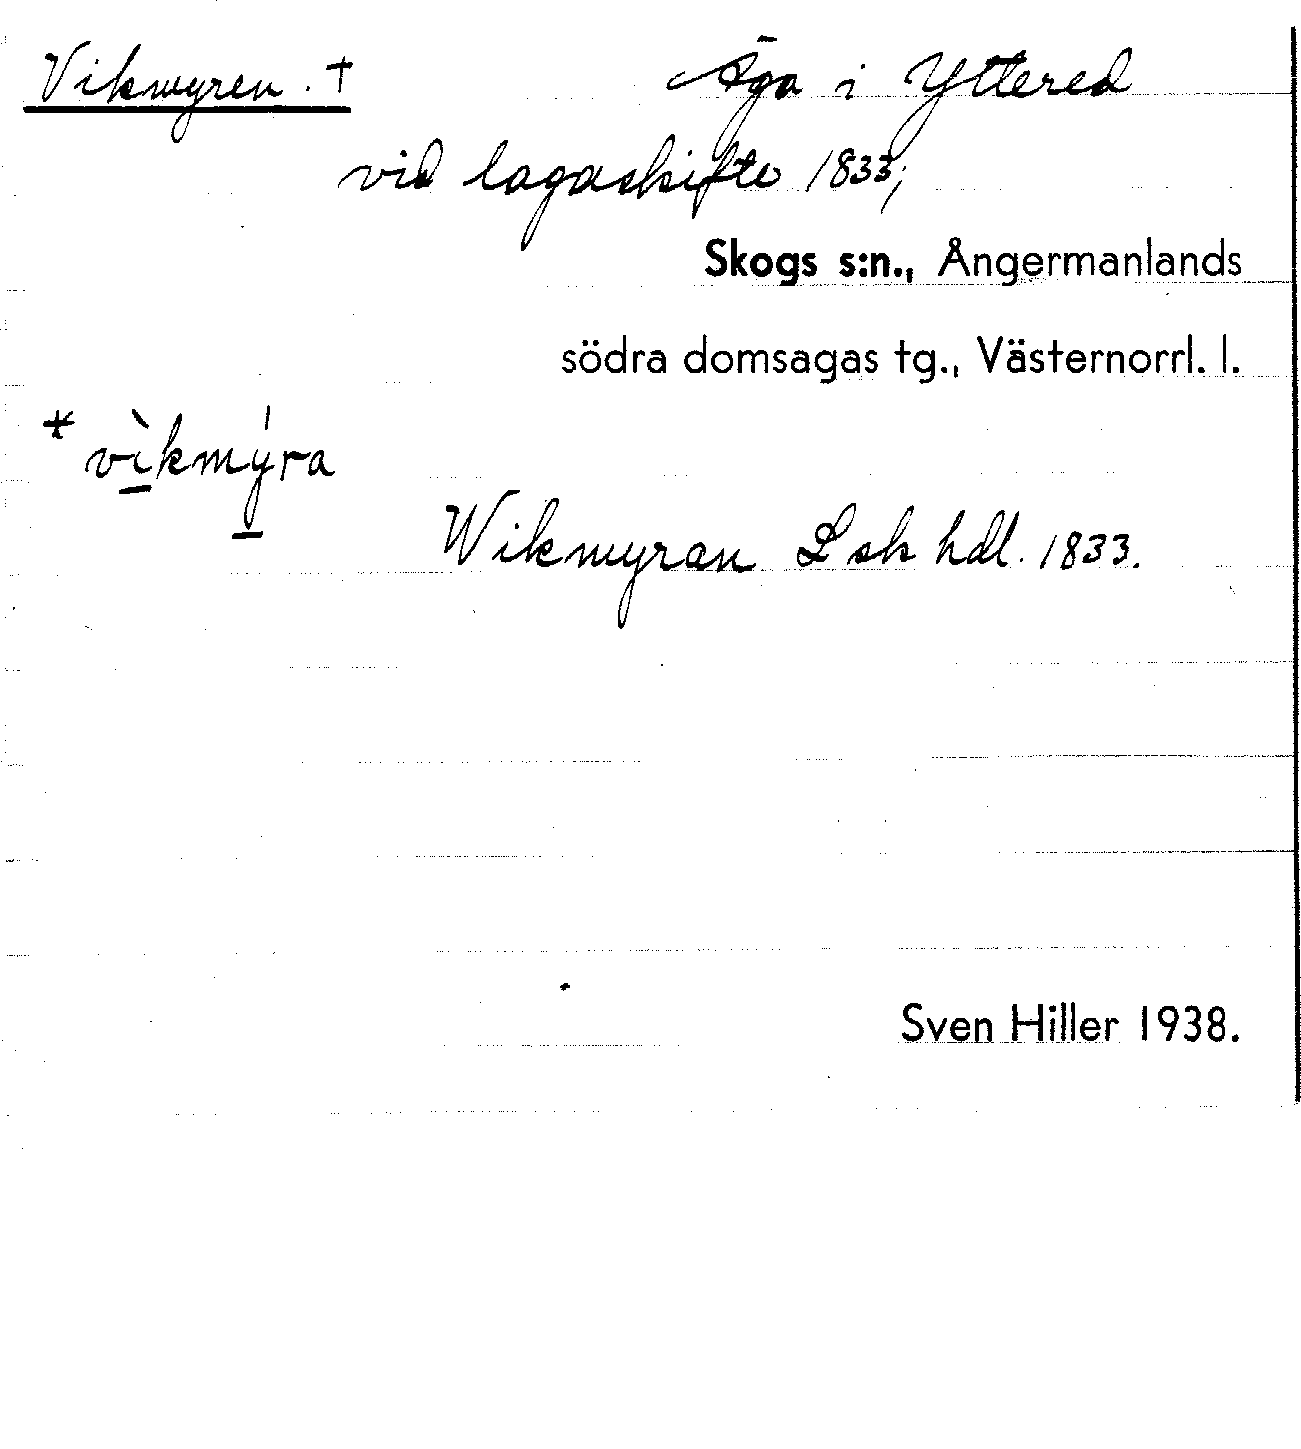 Vikmyren. †
Äga i Yttered
vid lagaskifte 1833;
Skogs s:n., Ångermanlands
södra domsagas tg., Västernorrl. l.
* vìkmýra
Wikmyran L sk hdl. 1833.
Sven Hiller 1938.